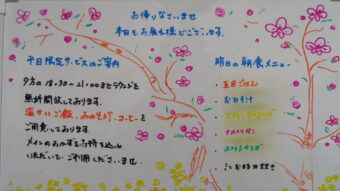 お帰りなさいませ
本日もお疲れ様でございます。
平日限定サービスのご案内
夕方の18:30〜21:00までラウンジを
無料開放しております。
温かいご飯、お味噌汁、コーヒーを
ご用意しております
メインのおかずをお持ち込み
いただいて、ご利用くださいませ
明日の朝食メニュー
ごはん
おみそ汁
ナポリタン
ポテトサラダ